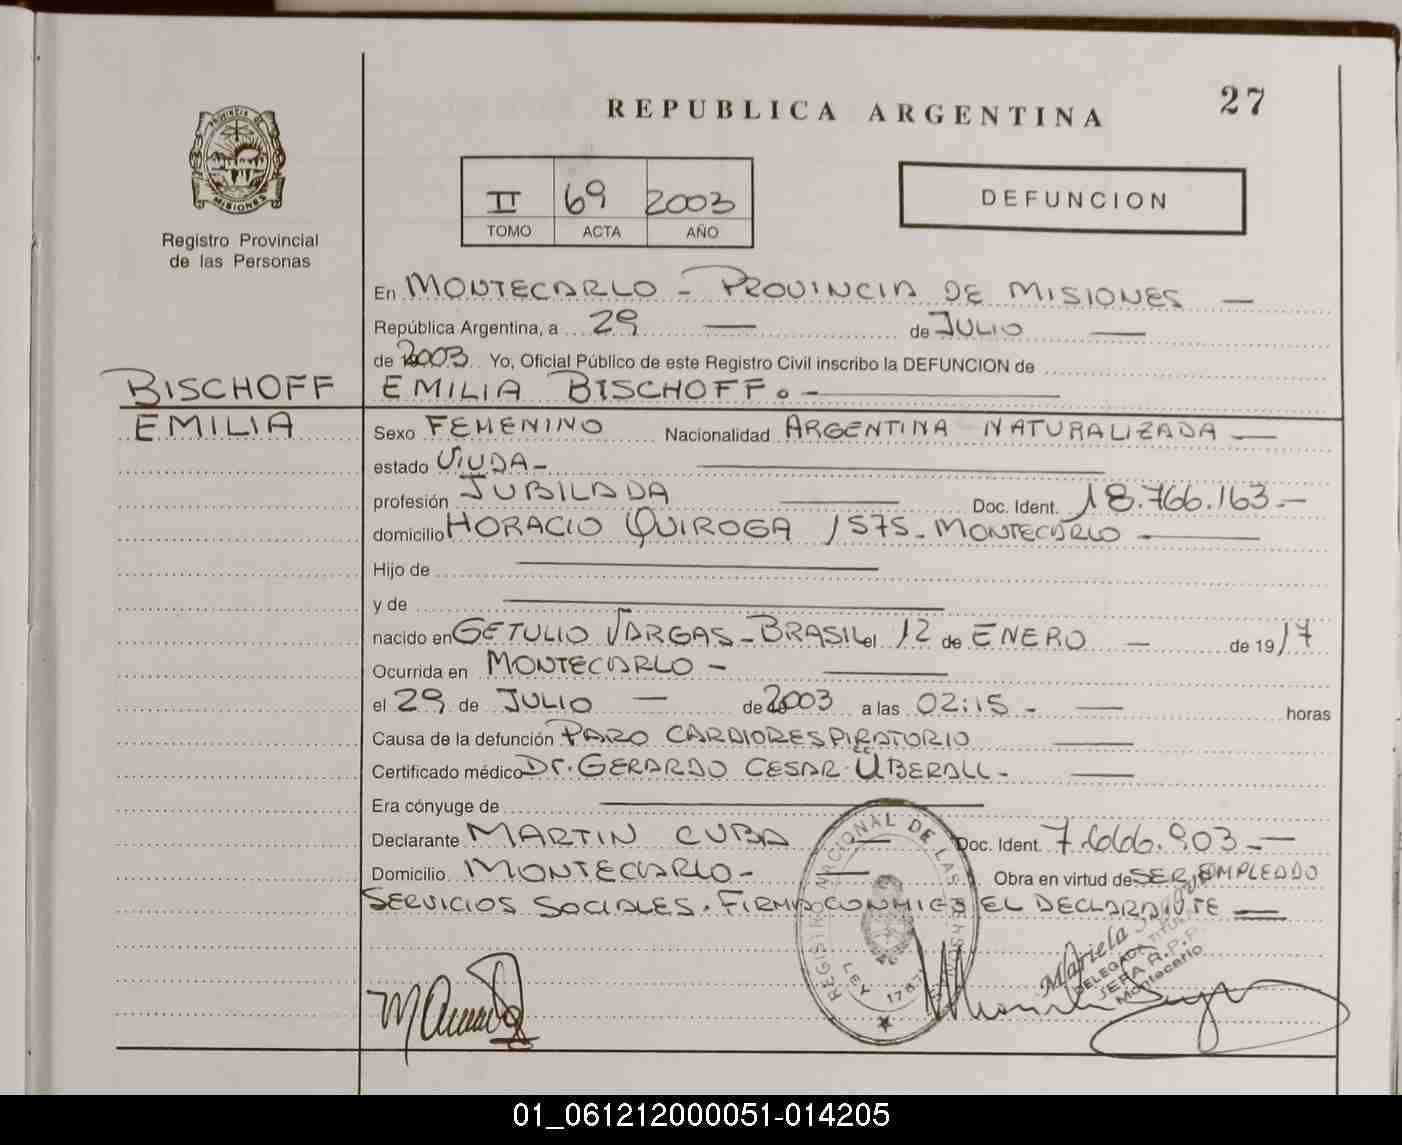 27
REPUBLICA ARGENTINA
PROVINCIA DE
MISIONES
Registro Provincial
de las Personas
II 69 2003
TOMO ACTA AÑO
DEFUNCION
En MONTECARLO - PROVINCIA DE MISIONES —
República Argentina, a 29 — de JULIO —
de 2003 Yo, Oficial Público de este Registro Civil inscribo la DEFUNCION de
BISCHOFF
EMILIA
EMILIA BISCHOFF. -
Sexo FEMENINO Nacionalidad ARGENTINA NATURALIZADA —
estado VIUDA -
profesión JUBILADA — Doc. Ident. 18.766.163. -
domicilio HORACIO QUIROGA 1575 - MONTECARLO —
Hijo de —
y de —
nacido en GETULIO VARGAS - BRASIL el 12 de ENERO — de 1917
Ocurrida en MONTECARLO - —
el 29 de JULIO — de 2003 a las 02:15 - — horas
Causa de la defunción PARO CARDIORESPIRATORIO —
Certificado médico Dr. GERARDO CESAR ÜBERALL - —
Era cónyuge de —
Declarante MARTIN CUBA — Doc. Ident. 7.666.903. —
Domicilio MONTECARLO - — Obra en virtud de SER EMPLEADO
SERVICIOS SOCIALES. FIRMA CONMIGO EL DECLARANTE —
REGISTRO NACIONAL DE LAS PERSONAS
LEY 17671
Mariela
DELEGADA TITULAR
JERA R.P.P.
Montecarlo
01_061212000051-014205